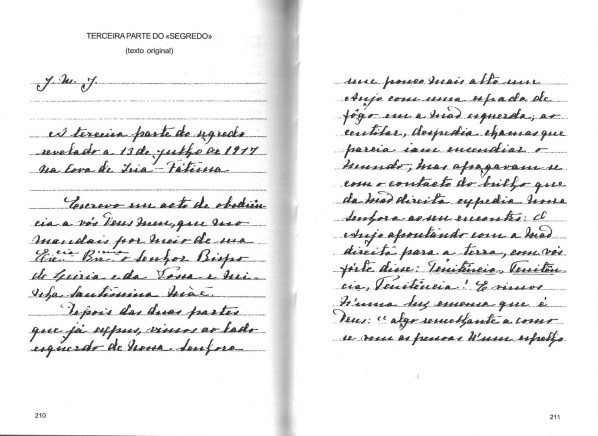 TERCEIRA PARTE DO «SEGREDO»
(texto original)
J. M. J.
A terceira parte do segredo
revelado a 13 de julho de 1917
na Cova de Iria – Fátima
Escrevo em acto de obediên-
cia a vós Deus meu, que mo
mandais por meio de sua
Ex.cia Rev.ma o Senhor Bispo
de Leiria e da Vossa e mi-
nha Santissima Mãe.
Depois das duas partes
que já expus, vimos ao lado
esquerdo de Nossa Senhora
210
um pouco mais alto um
Anjo com uma espada de
fôgo em a mão esquerda; ao
centilar, despedia chamas que
parecia iam encendiar o
mundo; mas apagavam-se
com o contacto do brilho que
da mão direita expedia Nossa
Senhora ao seu encontro: O
Anjo apontando com a mão
direita para a terra, com vós
forte disse: Penitência, Penitên-
cia, Penitência! E vimos
n'uma luz emensa que é
Deus: “algo semelhante a como
se vem as pessoas n'um espelho
211